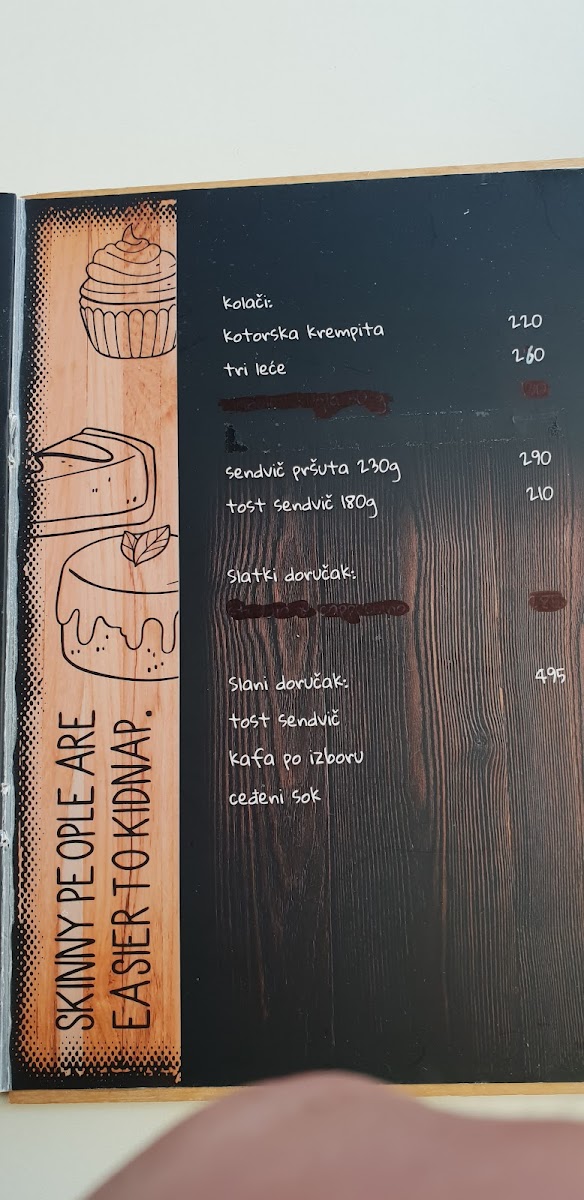 SKINNY PEOPLE ARE
EASIER TO KIDNAP.
kolači:
kotorska krempita 220
tri leće 260
sendvič pršuta 230g 290
tost sendvič 180g 210
Slatki doručak:
Slani doručak: 495
tost sendvič
kafa po izboru
ceđeni sok